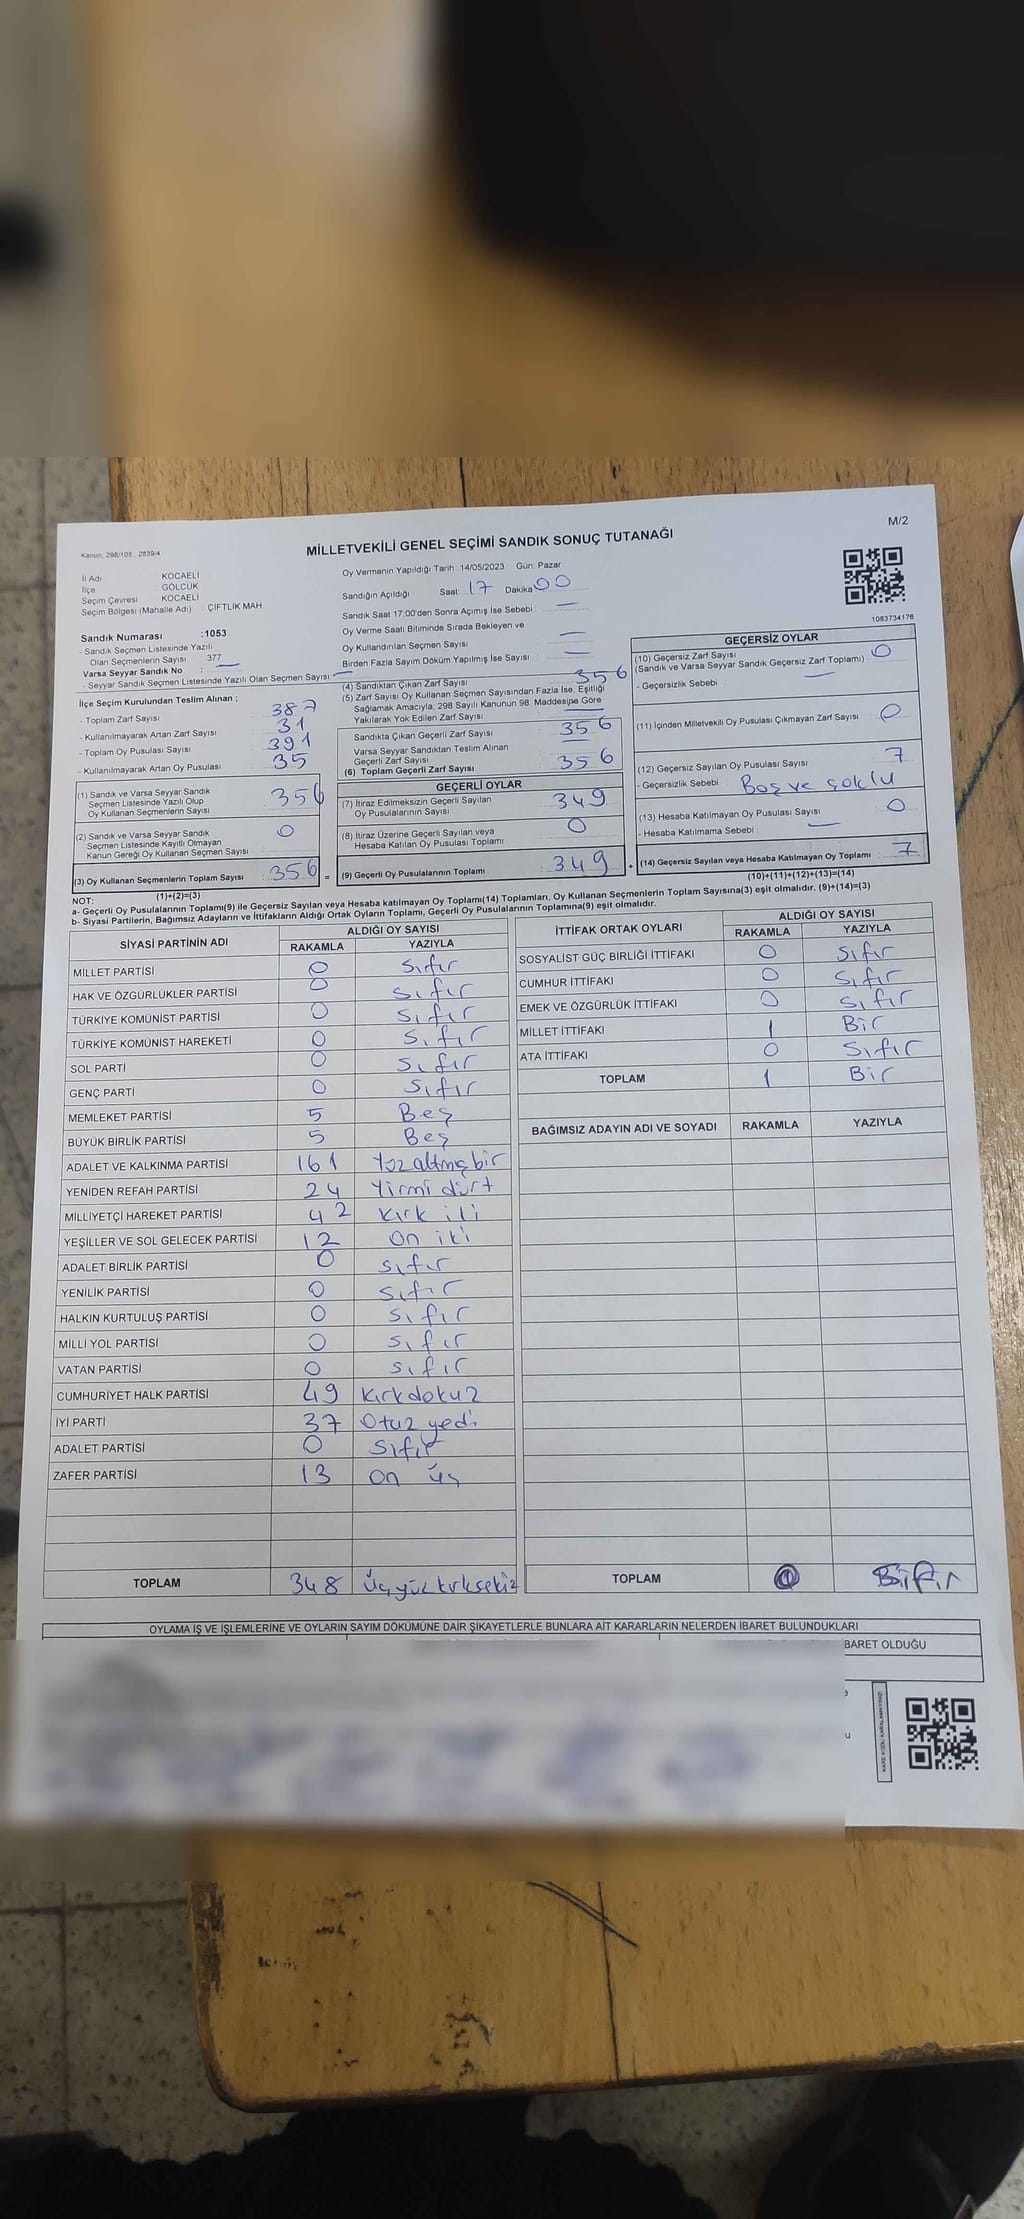 M/2
Kanun: 298/105 : 2839/4
MİLLETVEKİLİ GENEL SEÇİMİ SANDIK SONUÇ TUTANAĞI
İl Adı KOCAELİ
İlçe : GÖLCÜK
Seçim Çevresi KOCAELİ
Seçim Bölgesi (Mahalle Adı) : ÇİFTLİK MAH.
Sandık Numarası :1053
- Sandık Seçmen Listesinde Yazılı
Olan Seçmenlerin Sayısı : 377
Varsa Seyyar Sandık No : —
- Seyyar Sandık Seçmen Listesinde Yazılı Olan Seçmen Sayısı: —
Oy Vermenin Yapıldığı Tarih : 14/05/2023 Gün: Pazar
Sandığın Açıldığı Saat: 17 Dakika 00
Sandık Saat 17:00'den Sonra Açımış İse Sebebi : —
Oy Verme Saati Bitiminde Sırada Bekleyen ve
Oy Kullandırılan Seçmen Sayısı —
Birden Fazla Sayım Döküm Yapılmış İse Sayısı : —
1083734176
İlçe Seçim Kurulundan Teslim Alınan ;
- Toplam Zarf Sayısı 387
- Kullanılmayarak Artan Zarf Sayısı 31
- Toplam Oy Pusulası Sayısı 391
- Kullanılmayarak Artan Oy Pusulası 35
(1) Sandık ve Varsa Seyyar Sandık
Seçmen Listesinde Yazılı Olup
Oy Kullanan Seçmenlerin Sayısı 356
(2) Sandık ve Varsa Seyyar Sandık
Seçmen Listesinde Kayıtlı Olmayan
Kanun Gereği Oy Kullanan Seçmen Sayısı 0
(3) Oy Kullanan Seçmenlerin Toplam Sayısı 356 =
(1)+(2)=(3)
(4) Sandıktan Çıkan Zarf Sayısı 356
(5) Zarf Sayısı Oy Kullanan Seçmen Sayısından Fazla İse, Eşitliği
Sağlamak Amacıyla, 298 Sayılı Kanunun 98. Maddesine Göre
Yakılarak Yok Edilen Zarf Sayısı —
Sandıkta Çıkan Geçerli Zarf Sayısı 356
Varsa Seyyar Sandıktan Teslim Alınan
Geçerli Zarf Sayısı —
(6) Toplam Geçerli Zarf Sayısı 356
GEÇERLİ OYLAR
(7) İtiraz Edilmeksizin Geçerli Sayılan
Oy Pusulalarının Sayısı 349
(8) İtiraz Üzerine Geçerli Sayılan veya
Hesaba Katılan Oy Pusulası Toplamı 0
(9) Geçerli Oy Pusulalarının Toplamı 349 +
GEÇERSİZ OYLAR
(10) Geçersiz Zarf Sayısı 0
(Sandık ve Varsa Seyyar Sandık Geçersiz Zarf Toplamı)
- Geçersizlik Sebebi : —
(11) İçinden Milletvekili Oy Pusulası Çıkmayan Zarf Sayısı 0
(12) Geçersiz Sayılan Oy Pusulası Sayısı 7
- Geçersizlik Sebebi : Boş ve çoklu
(13) Hesaba Katılmayan Oy Pusulası Sayısı 0
- Hesaba Katılmama Sebebi : —
(14) Geçersiz Sayılan veya Hesaba Katılmayan Oy Toplamı 7
(10)+(11)+(12)+(13)=(14)
NOT:
a- Geçerli Oy Pusulalarının Toplamı(9) ile Geçersiz Sayılan veya Hesaba katılmayan Oy Toplamı(14) Toplamları, Oy Kullanan Seçmenlerin Toplam Sayısına(3) eşit olmalıdır. (9)+(14)=(3)
b- Siyasi Partilerin, Bağımsız Adayların ve İttifakların Aldığı Ortak Oyların Toplamı, Geçerli Oy Pusulalarının Toplamına(9) eşit olmalıdır.
SİYASİ PARTİNİN ADI ALDIĞI OY SAYISI
RAKAMLA YAZIYLA
MİLLET PARTİSİ 0 Sıfır
HAK VE ÖZGÜRLÜKLER PARTİSİ 0 Sıfır
TÜRKİYE KOMÜNİST PARTİSİ 0 Sıfır
TÜRKİYE KOMÜNİST HAREKETİ 0 Sıfır
SOL PARTİ 0 Sıfır
GENÇ PARTİ 0 Sıfır
MEMLEKET PARTİSİ 5 Beş
BÜYÜK BİRLİK PARTİSİ 5 Beş
ADALET VE KALKINMA PARTİSİ 161 Yüzaltmışbir
YENİDEN REFAH PARTİSİ 24 Yirmi dört
MİLLİYETÇİ HAREKET PARTİSİ 42 Kırk iki
YEŞİLLER VE SOL GELECEK PARTİSİ 12 On iki
ADALET BİRLİK PARTİSİ 0 Sıfır
YENİLİK PARTİSİ 0 Sıfır
HALKIN KURTULUŞ PARTİSİ 0 Sıfır
MİLLİ YOL PARTİSİ 0 Sıfır
VATAN PARTİSİ 0 Sıfır
CUMHURİYET HALK PARTİSİ 49 Kırkdokuz
İYİ PARTİ 37 Otuz yedi
ADALET PARTİSİ 0 Sıfır
ZAFER PARTİSİ 13 On üç
TOPLAM 348 Üçyüz kırksekiz
İTTİFAK ORTAK OYLARI ALDIĞI OY SAYISI
RAKAMLA YAZIYLA
SOSYALİST GÜÇ BİRLİĞİ İTTİFAKI 0 Sıfır
CUMHUR İTTİFAKI 0 Sıfır
EMEK VE ÖZGÜRLÜK İTTİFAKI 0 Sıfır
MİLLET İTTİFAKI 1 Bir
ATA İTTİFAKI 0 Sıfır
TOPLAM 1 Bir
BAĞIMSIZ ADAYIN ADI VE SOYADI RAKAMLA YAZIYLA
TOPLAM
OYLAMA İŞ VE İŞLEMLERİNE VE OYLARIN SAYIM DÖKÜMÜNE DAİR ŞİKAYETLERLE BUNLARA AİT KARARLARIN NELERDEN İBARET BULUNDUKLARI
BARET OLDUĞU